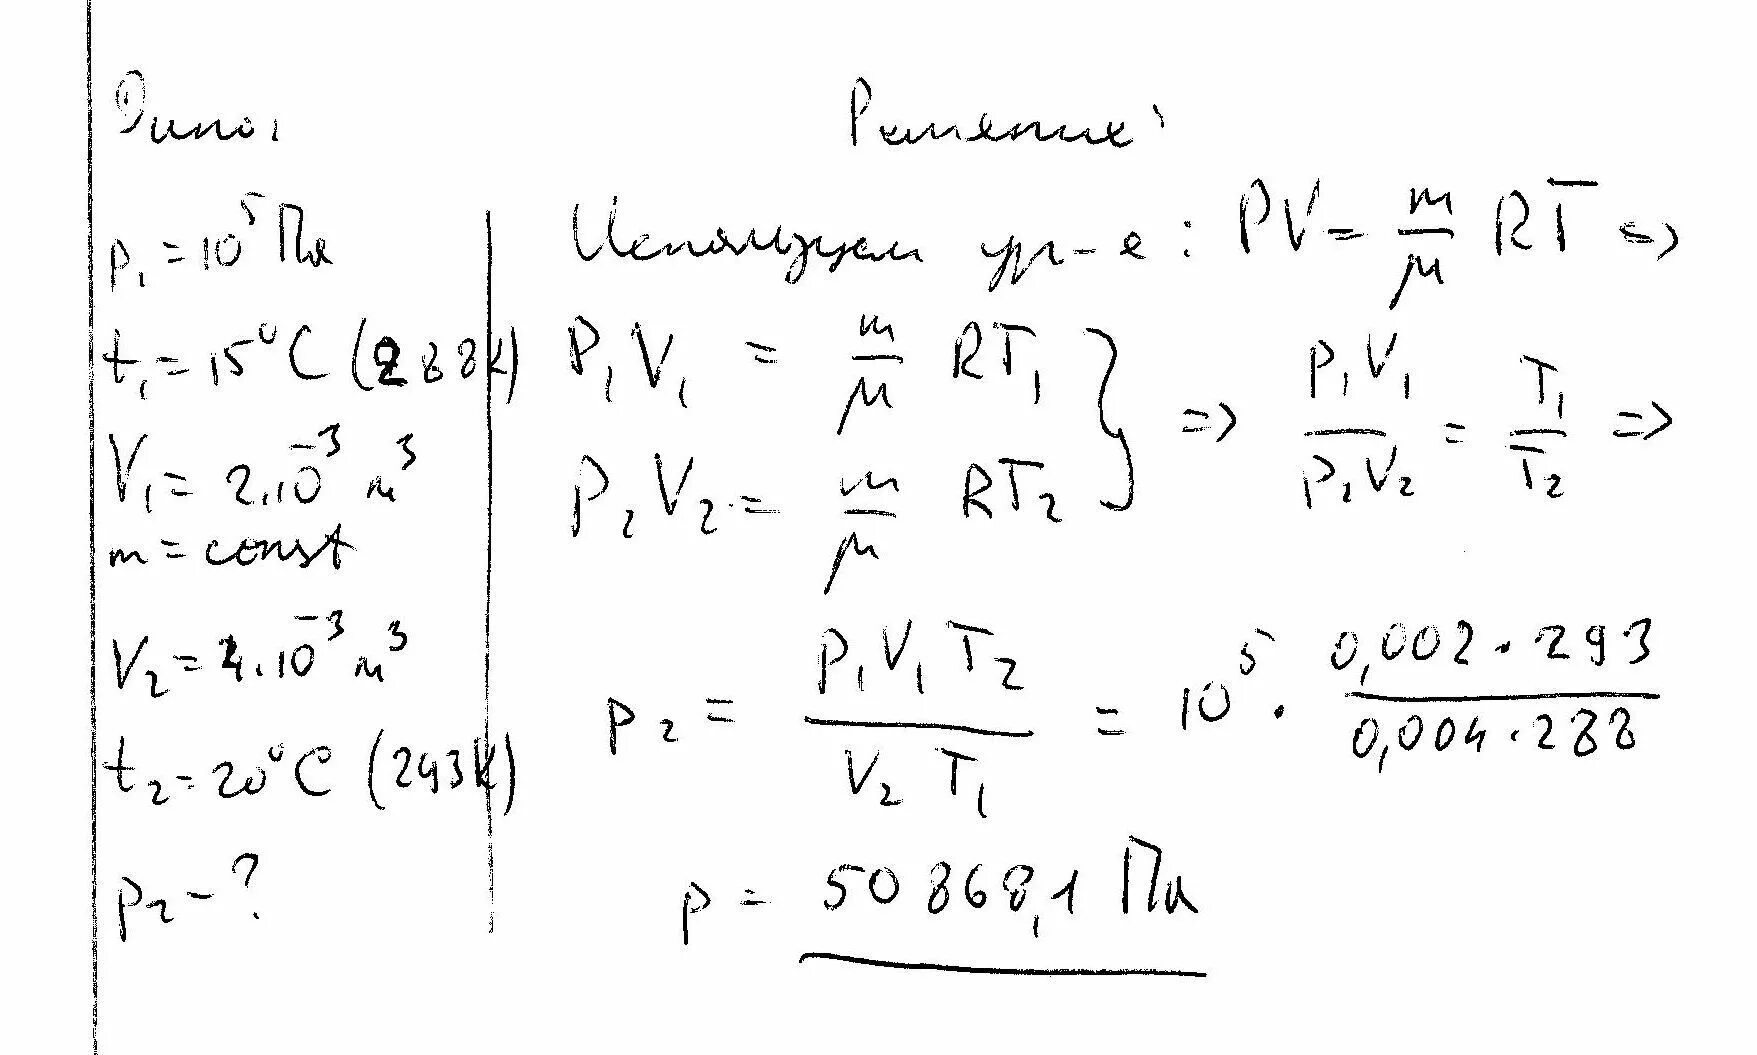 Дано:
p₁ = 10⁵ Па
t₁ = 15°C (288K)
V₁ = 2·10⁻³ м³
m = const
V₂ = 4·10⁻³ м³
t₂ = 20°C (293K)
p₂ - ?
Решение:
Используем ур-е: PV = m/μ RT =>
P₁V₁ = m/μ RT₁
P₂V₂ = m/μ RT₂
} => P₁V₁/P₂V₂ = T₁/T₂ =>
p₂ = P₁V₁T₂/V₂T₁ = 10⁵ · 0,002·293/0,004·288
p = 50868,1 Па